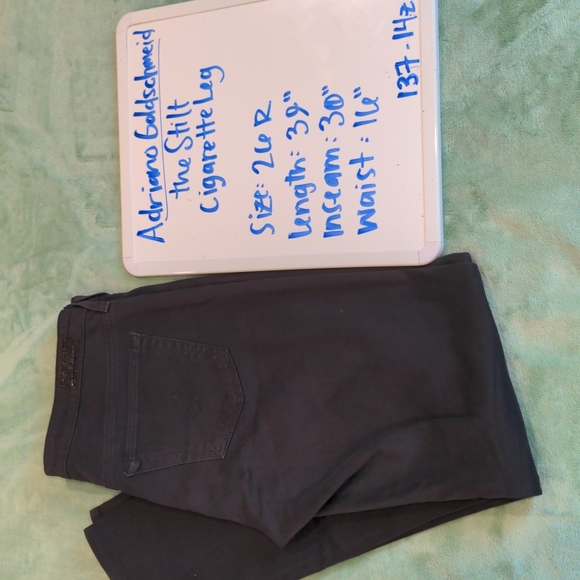 Adriano Goldschmeid
the Stilt
Cigarette Leg
Size: 26 R
Length: 39"
Inseam: 30"
Waist: 16"
137-14z